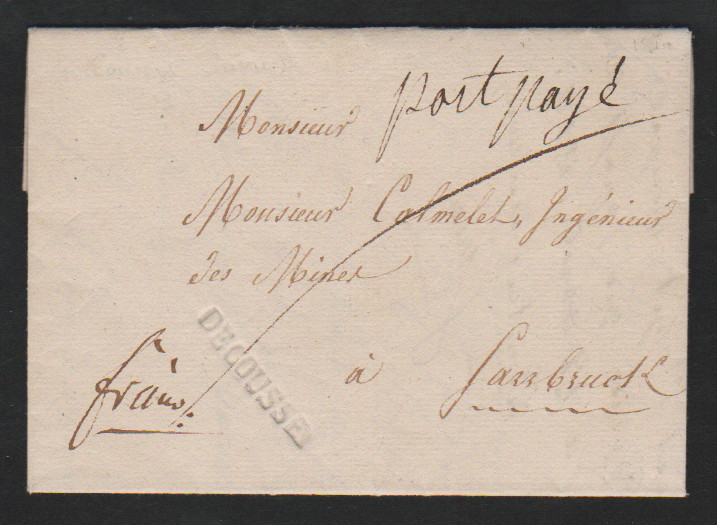 port payé
Monsieur
Monsieur Calmelet, Ingénieur
des Mines
à Sarrbruck
franco.
DECOUSSE